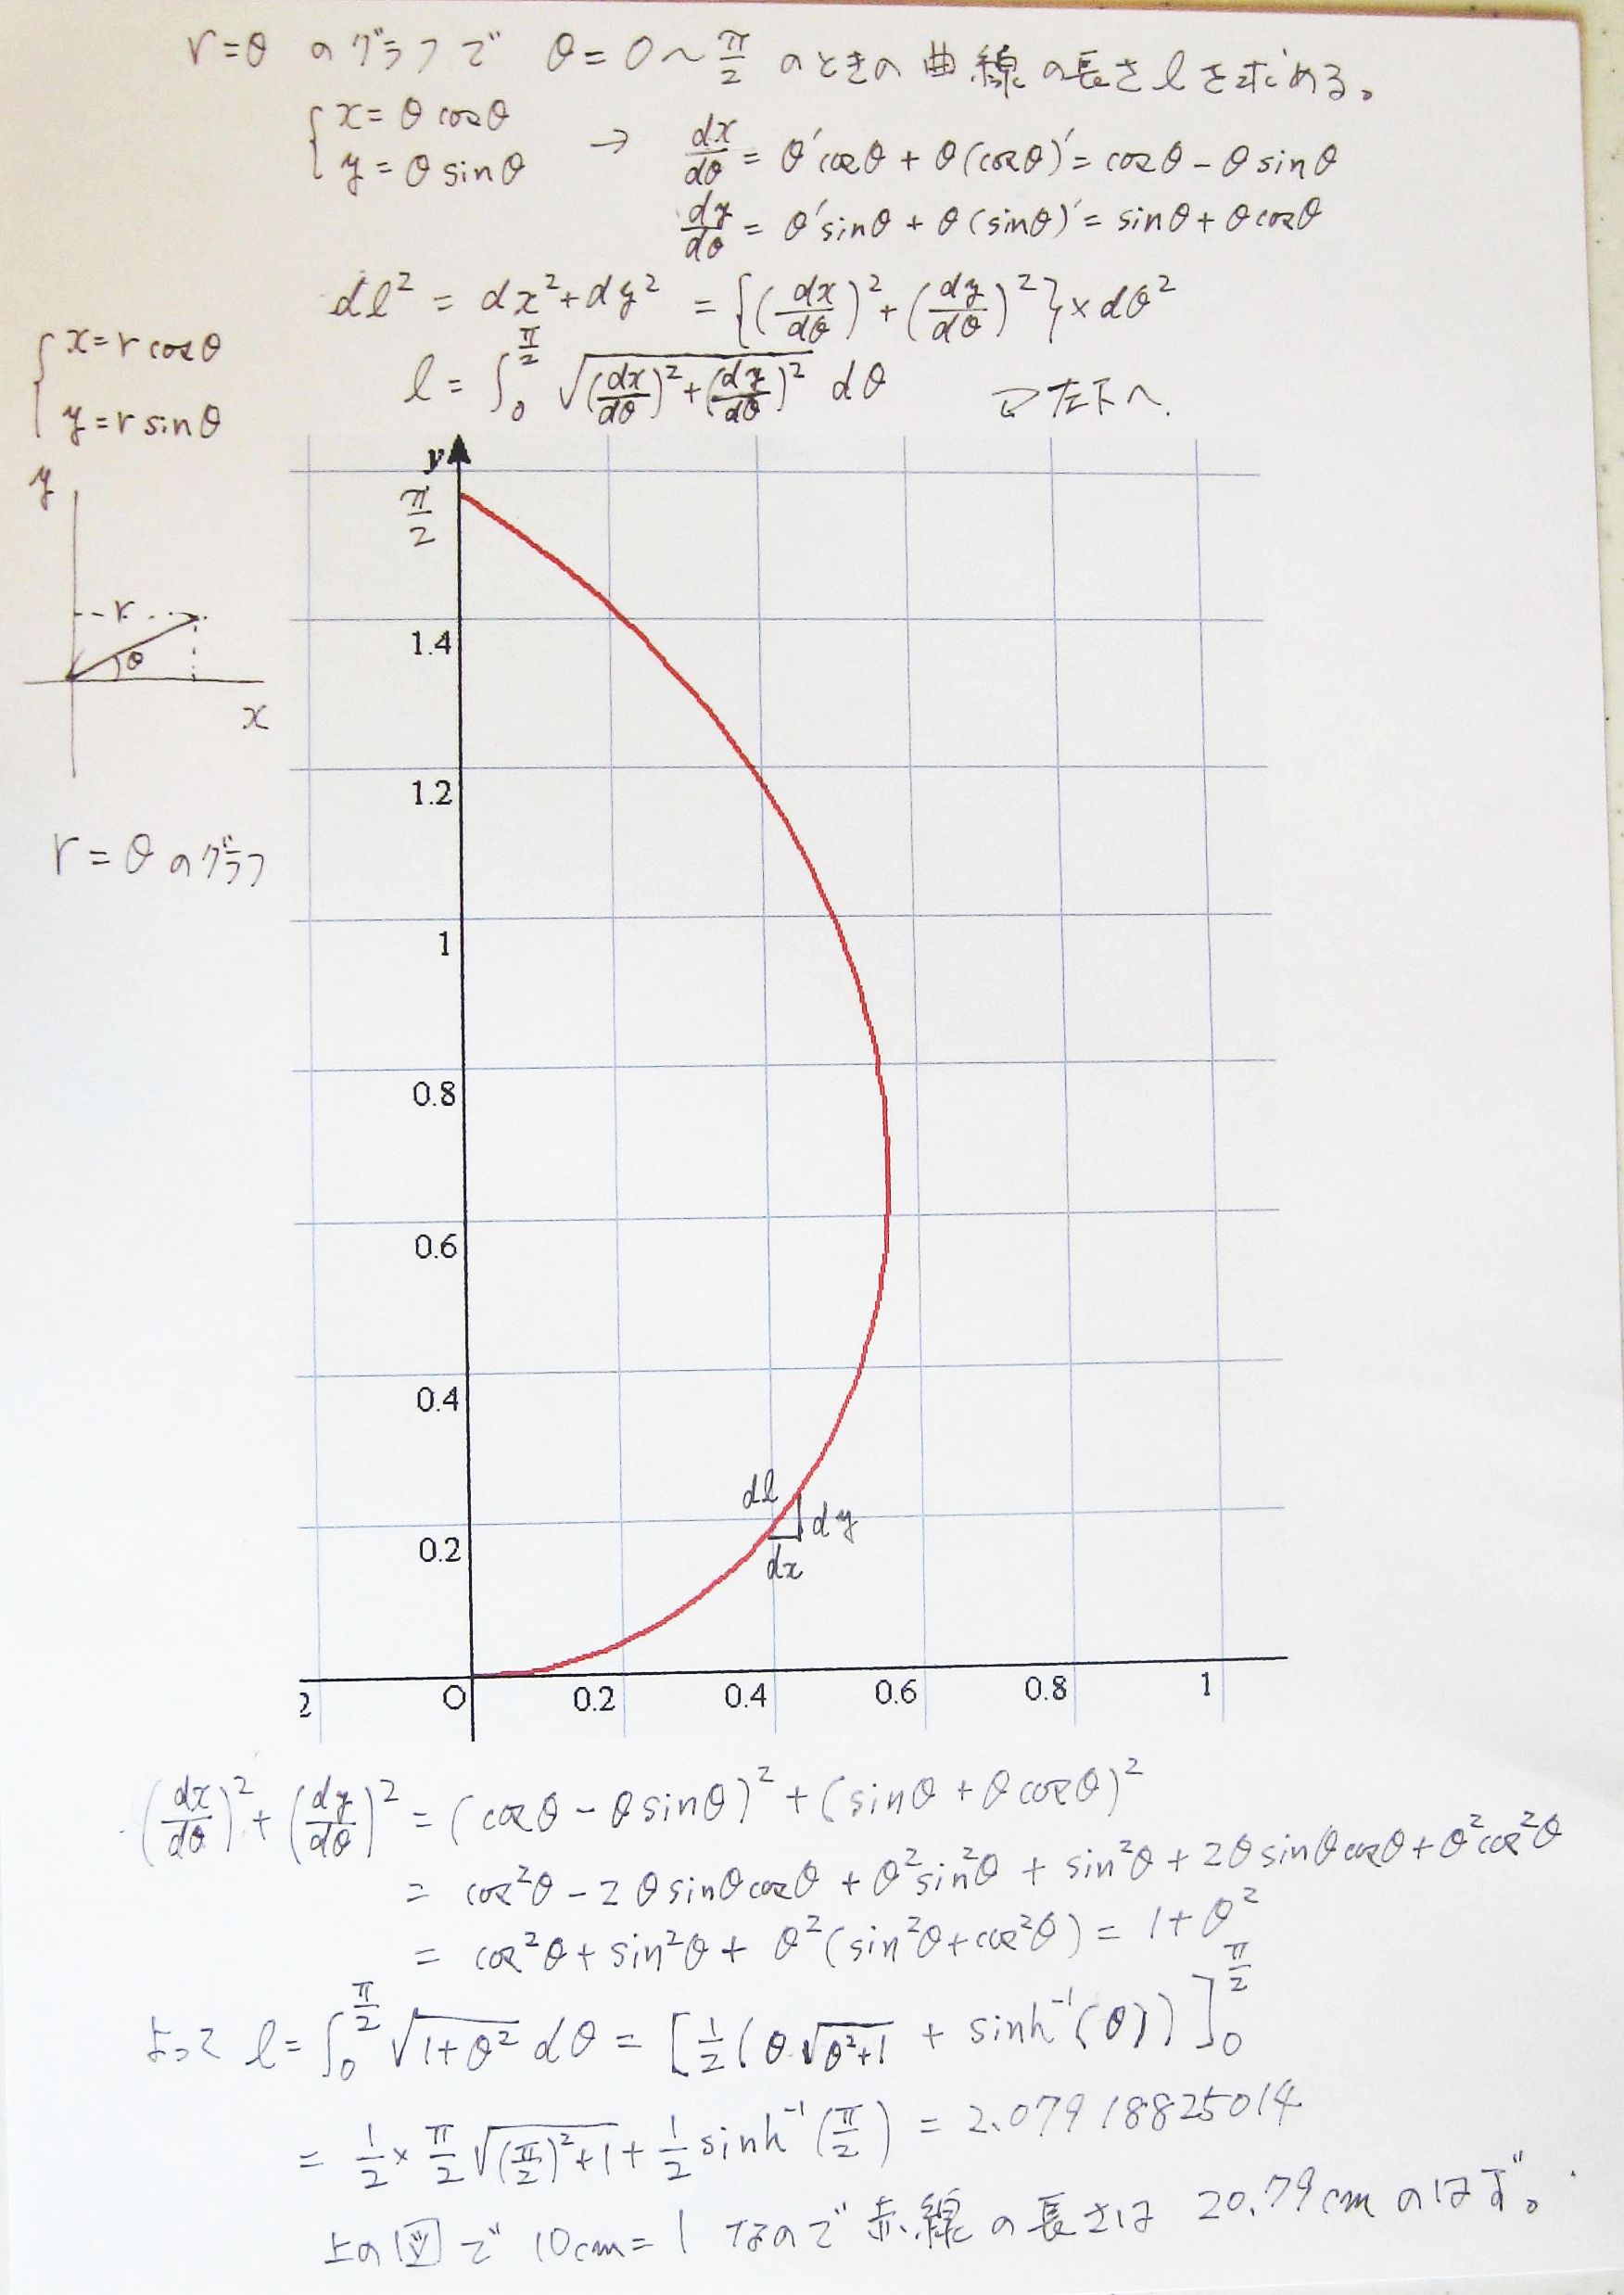 r=θ のグラフで θ=0～π/2 のときの曲線の長さlを求める。
{ x=θcosθ
y=θsinθ → dx/dθ = θ'cosθ + θ(cosθ)' = cosθ - θsinθ
dy/dθ = θ'sinθ + θ(sinθ)' = sinθ + θcosθ
dl² = dx²+dy² = {(dx/dθ)²+(dy/dθ)²}×dθ²
l = ∫₀^(π/2) √((dx/dθ)²+(dy/dθ)²) dθ 左下へ.
{ x=r cosθ
y=r sinθ
y
r
θ
x
r=θのグラフ
y
π/2
1.4
1.2
1
0.8
0.6
0.4
0.2
dl
dy
dx
2 O 0.2 0.4 0.6 0.8 1
(dx/dθ)²+(dy/dθ)² = (cosθ - θsinθ)²+(sinθ + θcosθ)²
= cos²θ - 2θsinθcosθ + θ²sin²θ + sin²θ + 2θsinθcosθ + θ²cos²θ
= cos²θ + sin²θ + θ²(sin²θ+cos²θ) = 1+θ²
よって l = ∫₀^(π/2) √(1+θ²) dθ = [½(θ·√(θ²+1) + sinh⁻¹(θ))]₀^(π/2)
= ½×π/2 √((π/2)²+1) + ½ sinh⁻¹(π/2) = 2.07918825014
上の図で 10cm=1 なので 赤線の長さは 20.79cmのはず。